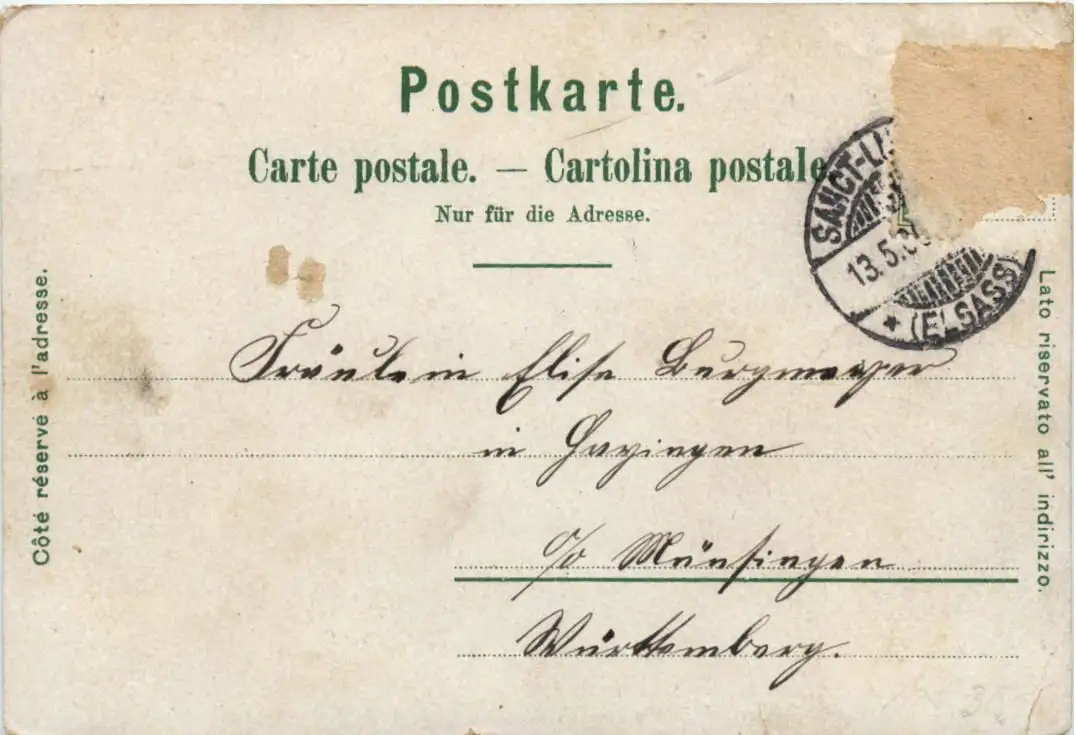 Postkarte.
Carte postale. — Cartolina postale
Nur für die Adresse.
SANCT-LU
13.5.
* (ELSASS)
Côté réservé à l'adresse.
Lato riservato all' indirizzo.
Fräulein Elise Burgmayer
in Hayingen
o/a Münsingen
Württemberg.